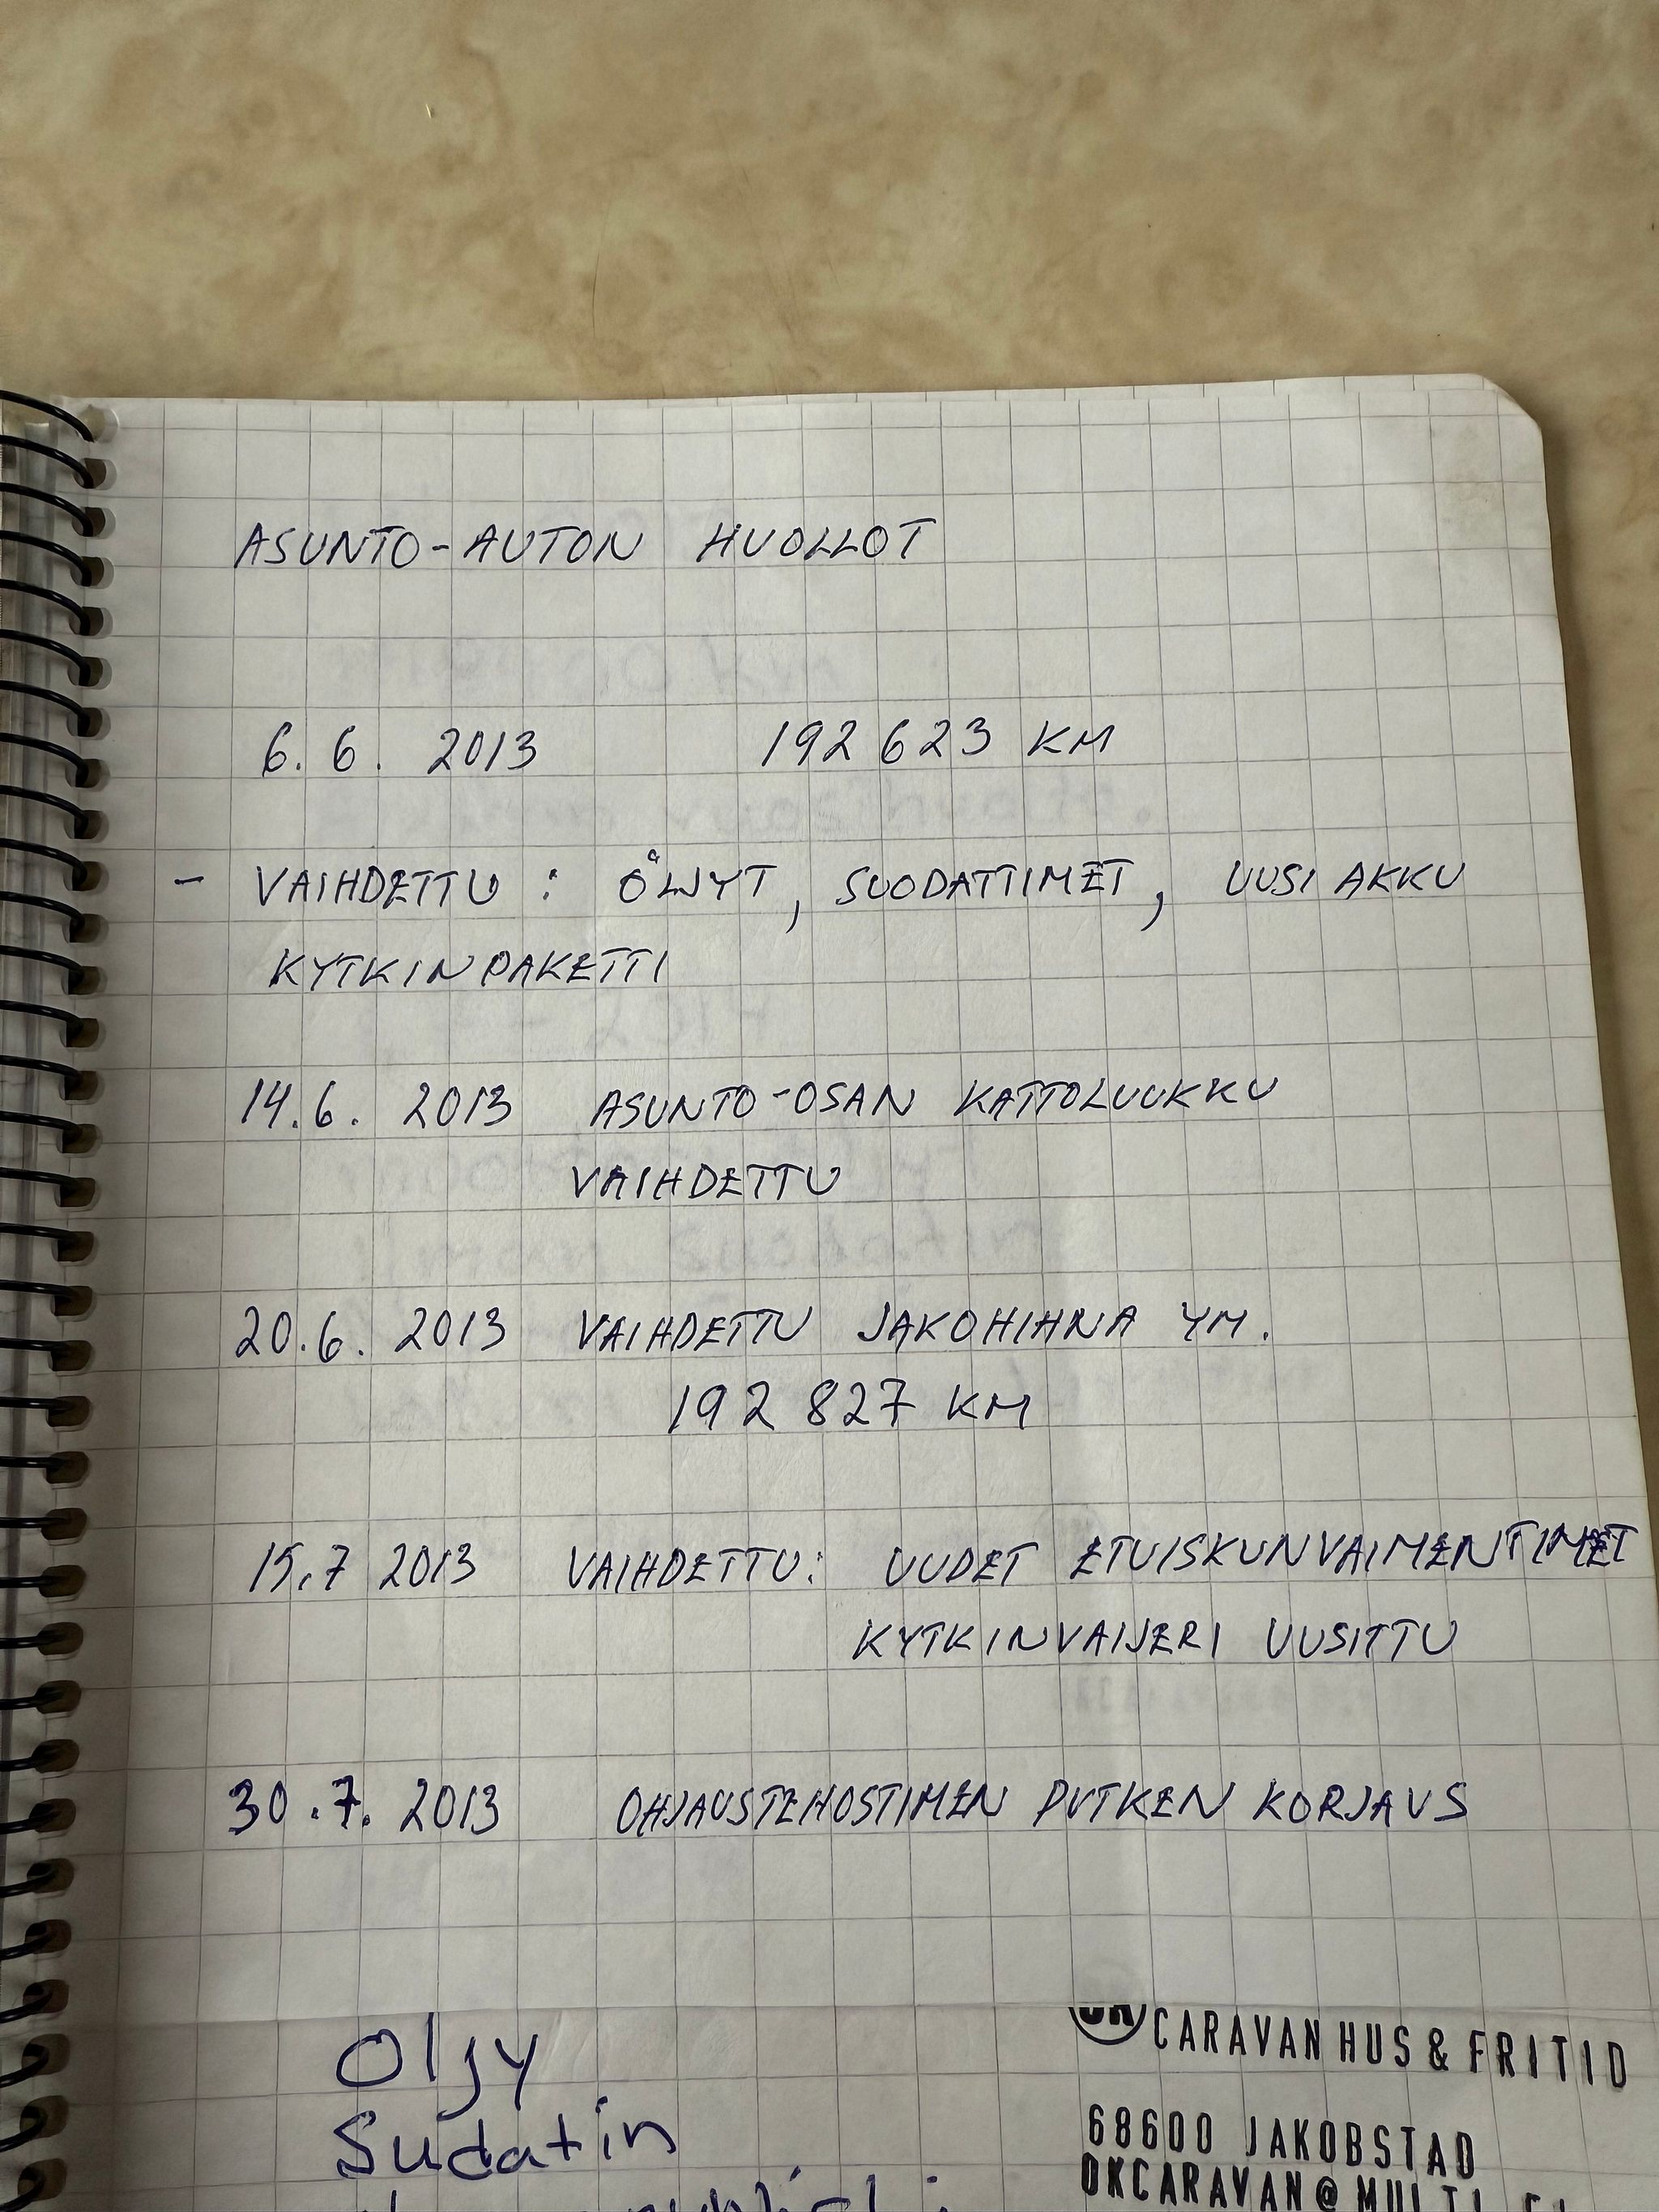 ASUNTO-AUTON HUOLLOT
6.6. 2013 192 623 KM
- VAIHDETTU : ÖLJYT, SUODATTIMET, UUSI AKKU
KYTKINPAKETTI
14.6. 2013 ASUNTO-OSAN KATTOLUUKKU
VAIHDETTU
20.6. 2013 VAIHDETTU JAKOHIHNA YM.
192 827 KM
15.7 2013 VAIHDETTU: UUDET ETUISKUNVAIMENTIMET
KYTKINVAIJERI UUSITTU
30.7. 2013 OHJAUSTEHOSTIMEN PUTKEN KORJAUS
Oljy
Sudatin
OK CARAVAN HUS & FRITID
68600 JAKOBSTAD
OKCARAVAN@MULTI.FI